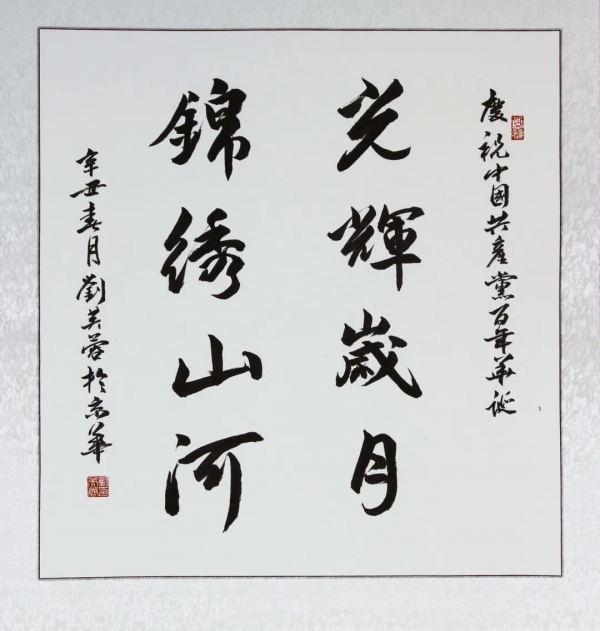 慶祝中國共產黨百年華誕
光輝歲月
錦绣山河
辛丑春月劉芙蓉於京華